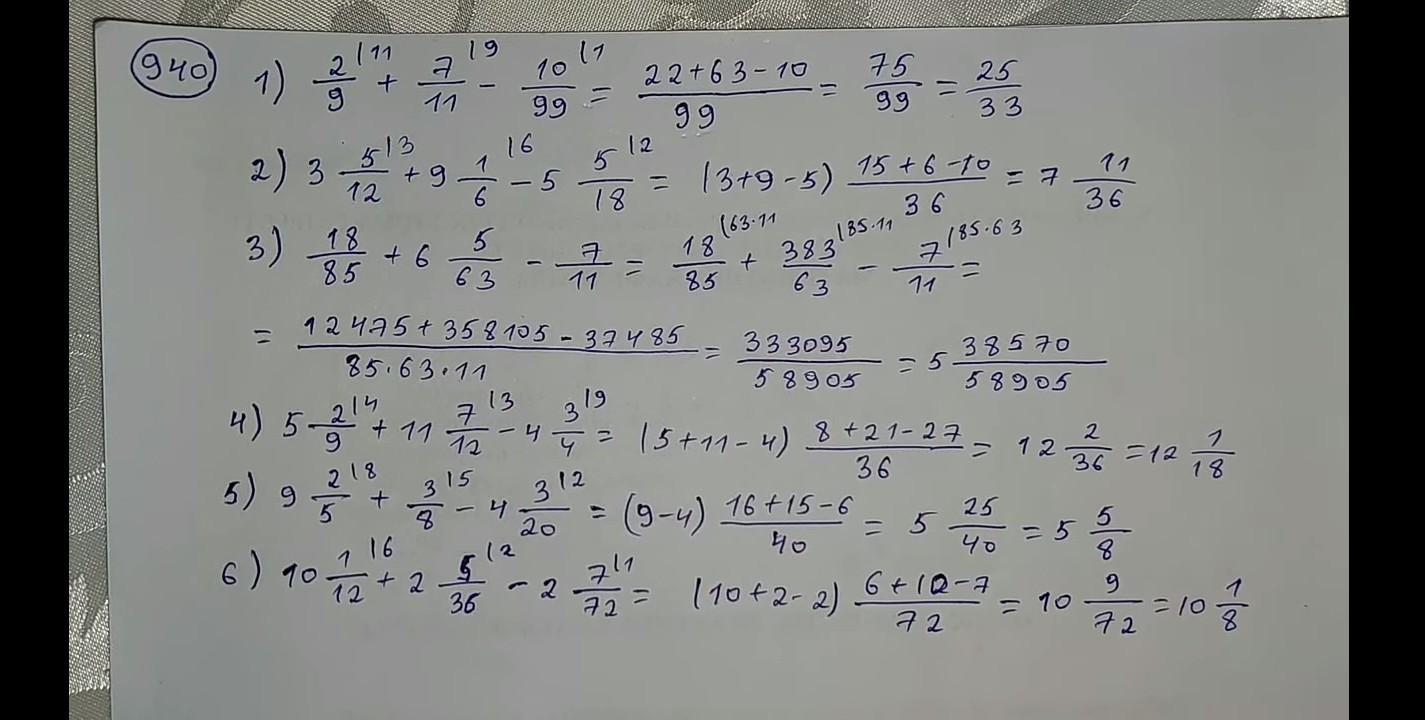 940 1) 2/9 |11 + 7/11 |9 - 10/99 |1 = (22+63-10)/99 = 75/99 = 25/33
2) 3 5/12 |3 + 9 1/6 |6 - 5 5/18 |2 = (3+9-5) (15+6-10)/36 = 7 11/36
3) 18/85 + 6 5/63 - 7/11 = 18/85 |63·11 + 383/63 |85·11 - 7/11 |85·63 =
= (12475+358105-37485)/(85·63·11) = 333095/58905 = 5 38570/58905
4) 5 2/9 |4 + 11 7/12 |3 - 4 3/4 |9 = (5+11-4) (8+21-27)/36 = 12 2/36 = 12 1/18
5) 9 2/5 |8 + 3/8 |5 - 4 3/20 |2 = (9-4) (16+15-6)/40 = 5 25/40 = 5 5/8
6) 10 1/12 |6 + 2 5/36 |2 - 2 7/72 |1 = (10+2-2) (6+10-7)/72 = 10 9/72 = 10 1/8